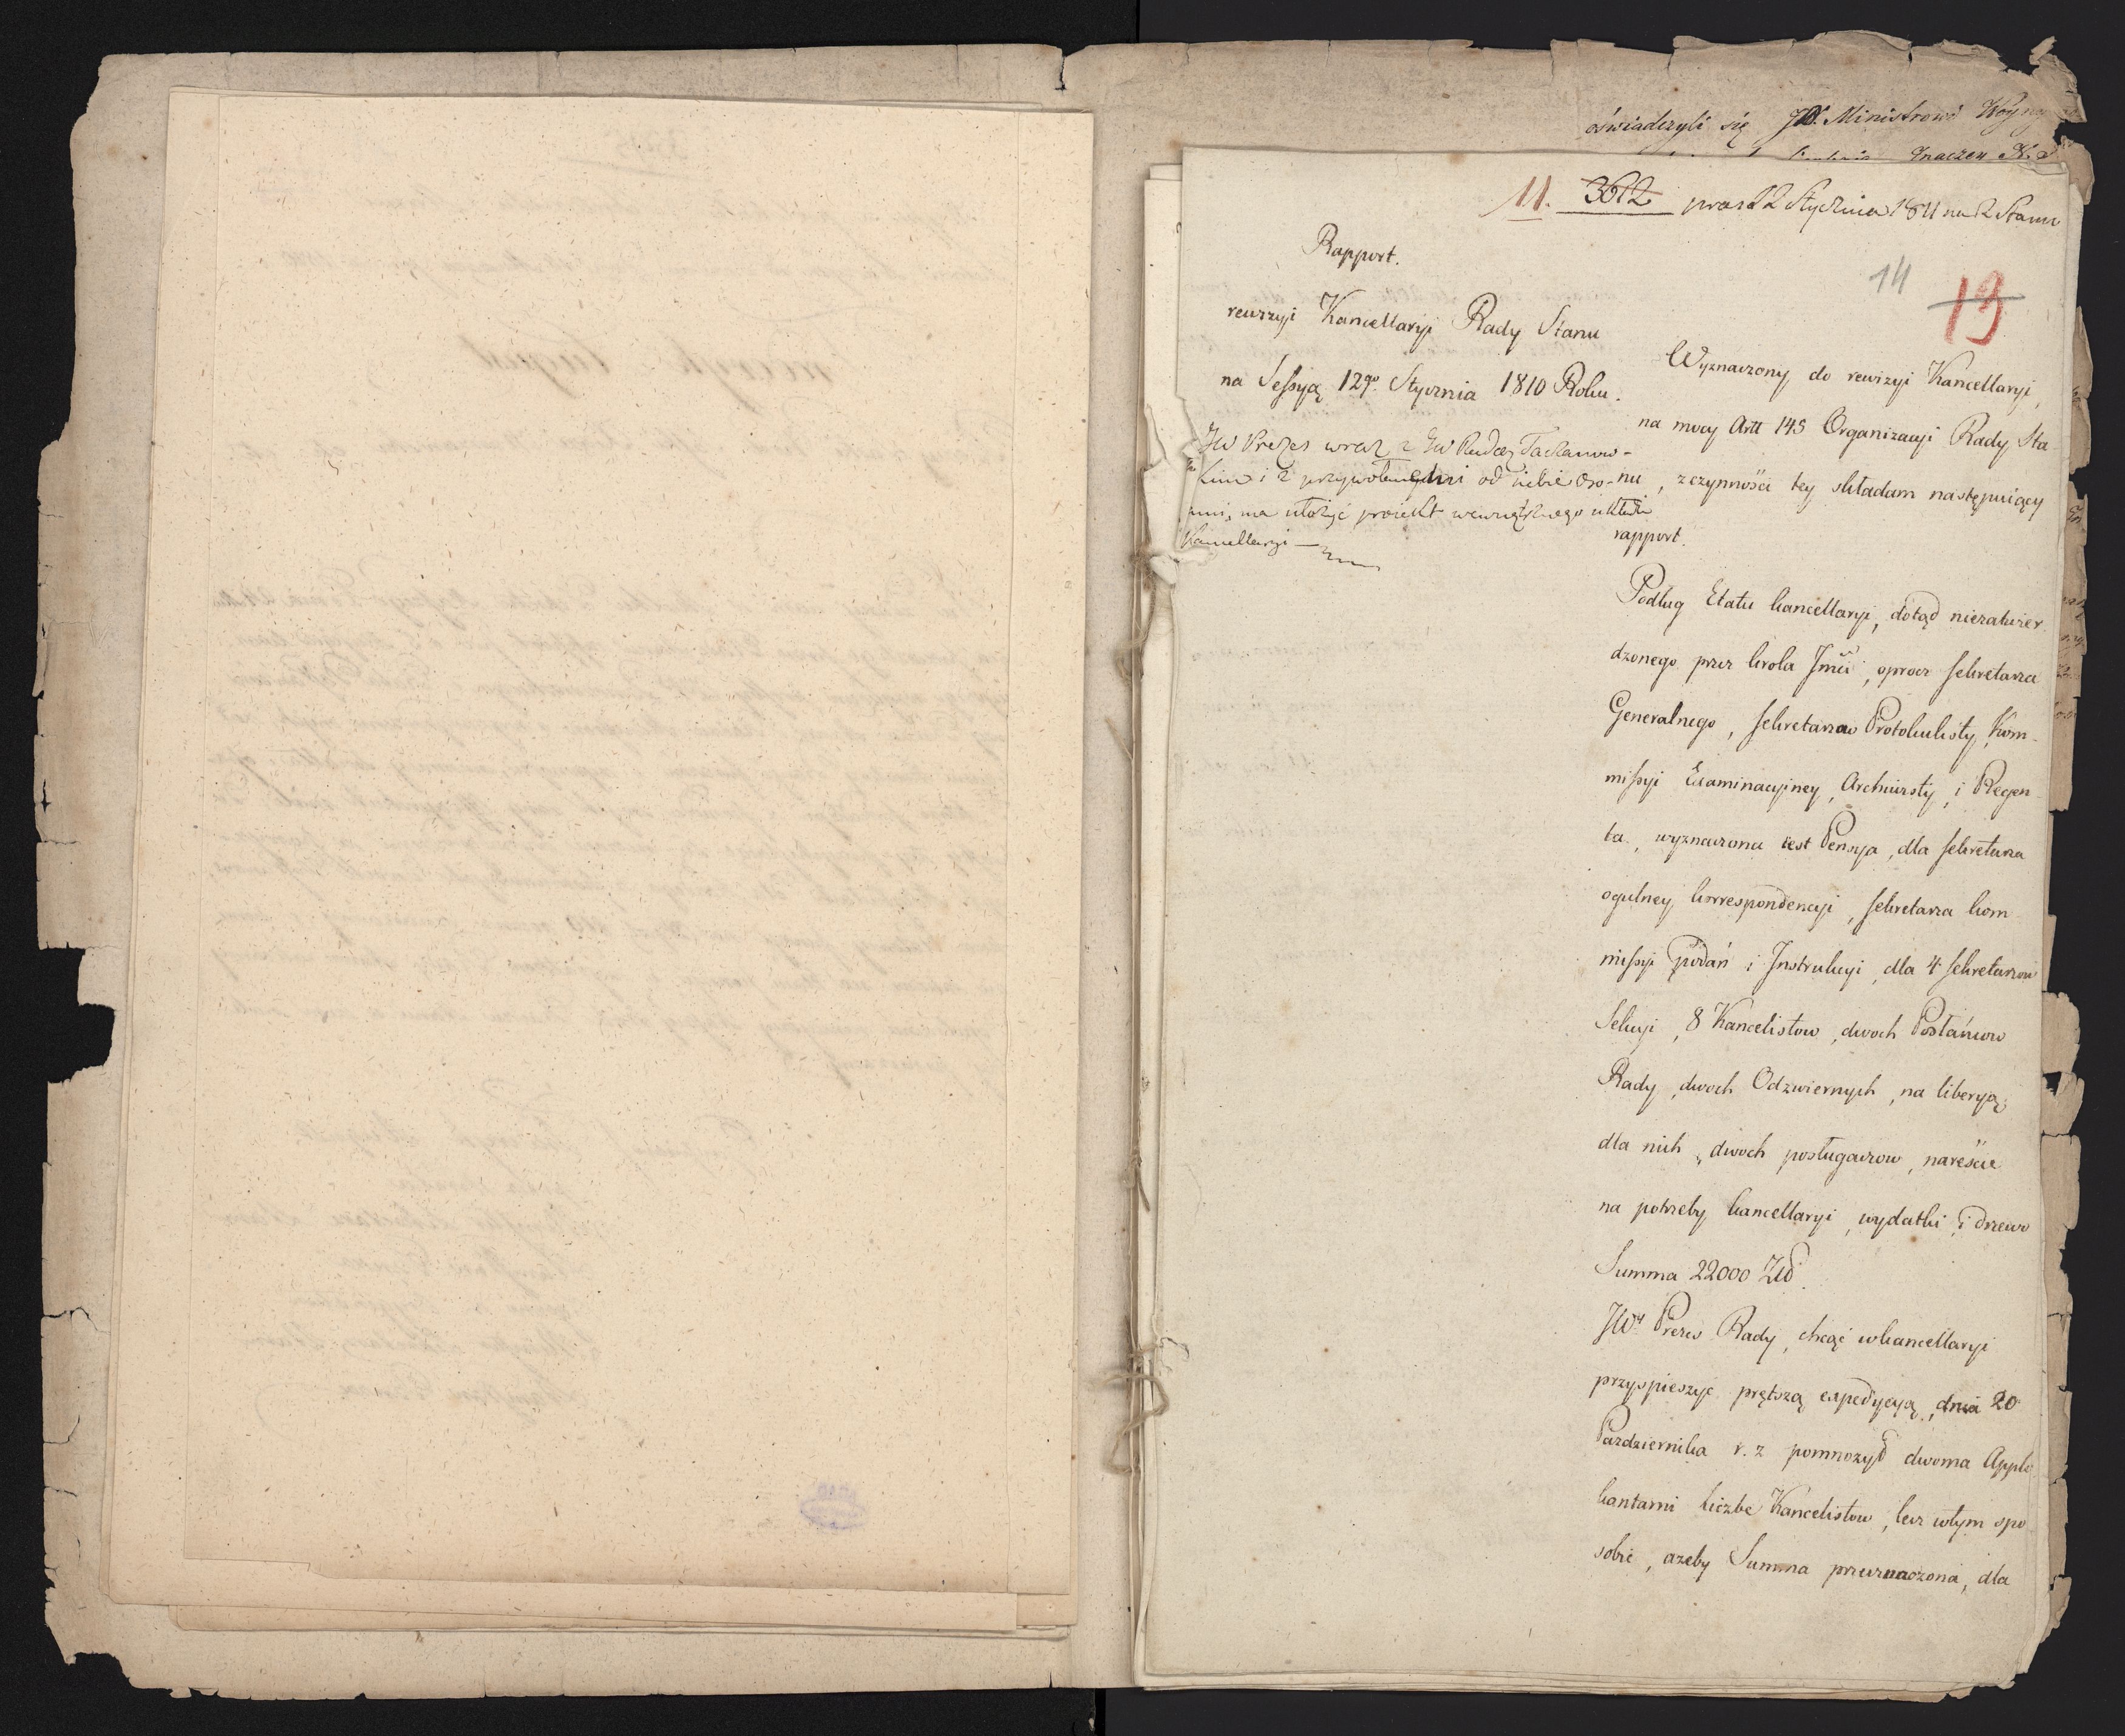 oświadczyli się JW. Ministrowi Woyny
Inaczey
11. 3612 praes 12 Stycznia 1811 na R Stanu
14 13
Rapport.
rewizyi Kancellaryi Rady Stanu
na Sessyą 12go. Stycznia 1810 Roku.
JW Prezes wraz z JW Radcą Tackanow-
skim i z przywołanemi od siebie oso-
ami, ma ułożyć proiekt wewnętrznego układu
Kancellaryi —
Wyznaczony do rewizyi Kancellaryi,
na mocy Artt 145 Organizacyi Rady Sta
nu, z czynności tey składam następuiący
rapport.
Podług Etatu kancellaryi, dotąd niezatwier
dzonego przez krola Jmci, oprocz sekretarza
Generalnego, sekretarzow Protokulisty, Kom-
missyi Examinacyiney, Archiwisty, i Regen-
ta, wyznaczona iest Pensya, dla sekretarza
ogulney korrespondencyi, sekretarza kom
missyi podań i Instrukcyi, dla 4 sekretarzow
Sekcyi, 8 Kancelistow, dwoch Posłańcow
Rady, dwoch Odzwiernych, na liberyą
dla nich, dwoch posługaczow, nareście
na potrzeby kancellaryi, wydatki i drzewo
Summa 22000 Złł.
JWy Prezes Rady, chcąć w kancellaryi
przyspieszyć prętszą expedycyą, dnia 20
Pazdziernika r. z pomnozył dwoma Appli
kantami liczbe Kancelistow, lecz w tym spo
sobie, azeby Summa przeznaczona, dla